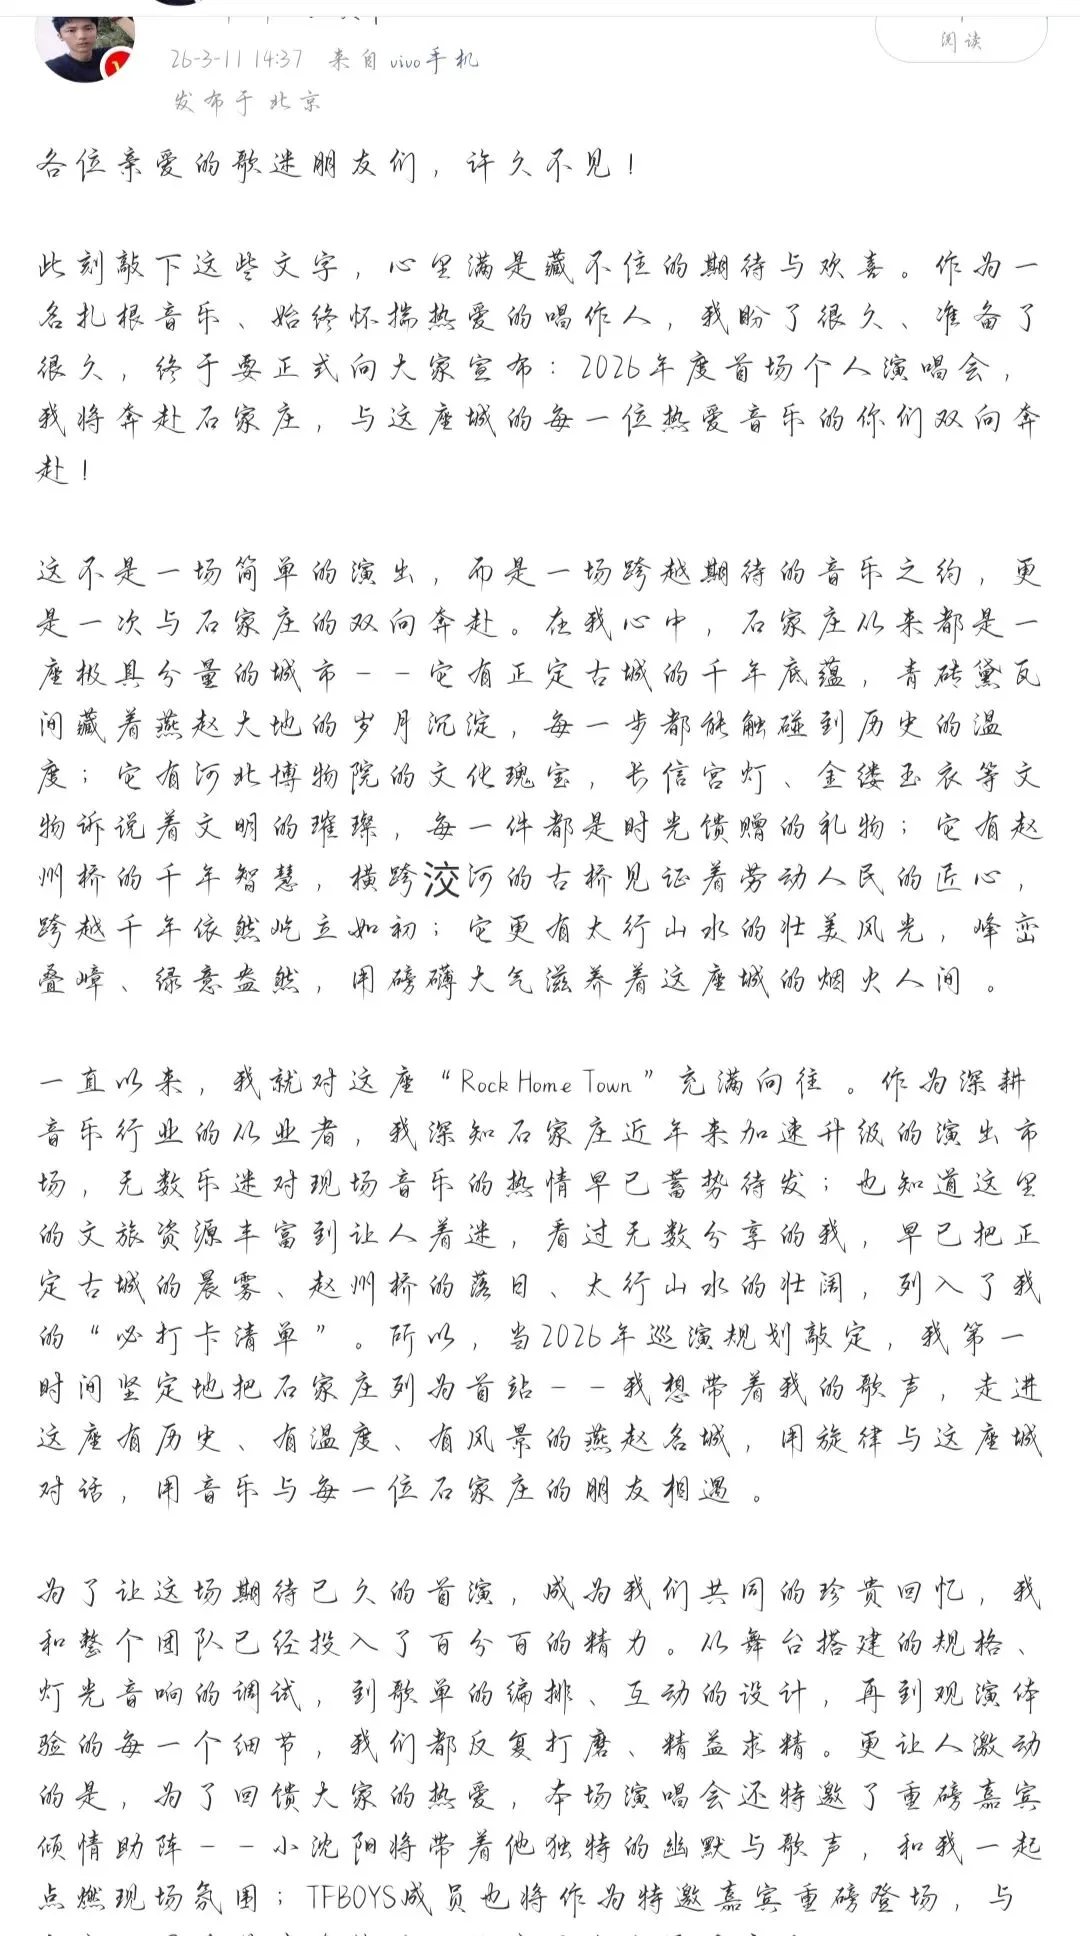 阅读
26-3-11 14:37 来自 vivo手机
发布于 北京
各位亲爱的歌迷朋友们，许久不见！
此刻敲下这些文字，心里满是藏不住的期待与欢喜。作为一
名扎根音乐、始终怀揣热爱的唱作人，我盼了很久、准备了
很久，终于要正式向大家宣布：2026年度首场个人演唱会，
我将奔赴石家庄，与这座城的每一位热爱音乐的你们双向奔
赴！
这不是一场简单的演出，而是一场跨越期待的音乐之约，更
是一次与石家庄的双向奔赴。在我心中，石家庄从来都是一
座极具分量的城市－－它有正定古城的千年底蕴，青砖黛瓦
间藏着燕赵大地的岁月沉淀，每一步都能触碰到历史的温
度；它有河北博物院的文化瑰宝，长信宫灯、金缕玉衣等文
物诉说着文明的璀璨，每一件都是时光馈赠的礼物；它有赵
州桥的千年智慧，横跨洨河的古桥见证着劳动人民的匠心，
跨越千年依然屹立如初；它更有太行山水的壮美风光，峰峦
叠嶂、绿意盎然，用磅礴大气滋养着这座城的烟火人间 。
一直以来，我就对这座“Rock Home Town”充满向往 。作为深耕
音乐行业的从业者，我深知石家庄近年来加速升级的演出市
场，无数乐迷对现场音乐的热情早已蓄势待发；也知道这里
的文旅资源丰富到让人着迷，看过无数分享的我，早已把正
定古城的晨雾、赵州桥的落日、太行山水的壮阔，列入了我
的“必打卡清单”。所以，当2026年巡演规划敲定，我第一
时间坚定地把石家庄列为首站－－我想带着我的歌声，走进
这座有历史、有温度、有风景的燕赵名城，用旋律与这座城
对话，用音乐与每一位石家庄的朋友相遇 。
为了让这场期待已久的首演，成为我们共同的珍贵回忆，我
和整个团队已经投入了百分百的精力。从舞台搭建的规格、
灯光音响的调试，到歌单的编排、互动的设计，再到观演体
验的每一个细节，我们都反复打磨、精益求精。更让人激动
的是，为了回馈大家的热爱，本场演唱会还特邀了重磅嘉宾
倾情助阵－－小沈阳将带着他独特的幽默与歌声，和我一起
点燃现场氛围；TFBOYS成员也将作为特邀嘉宾重磅登场，与